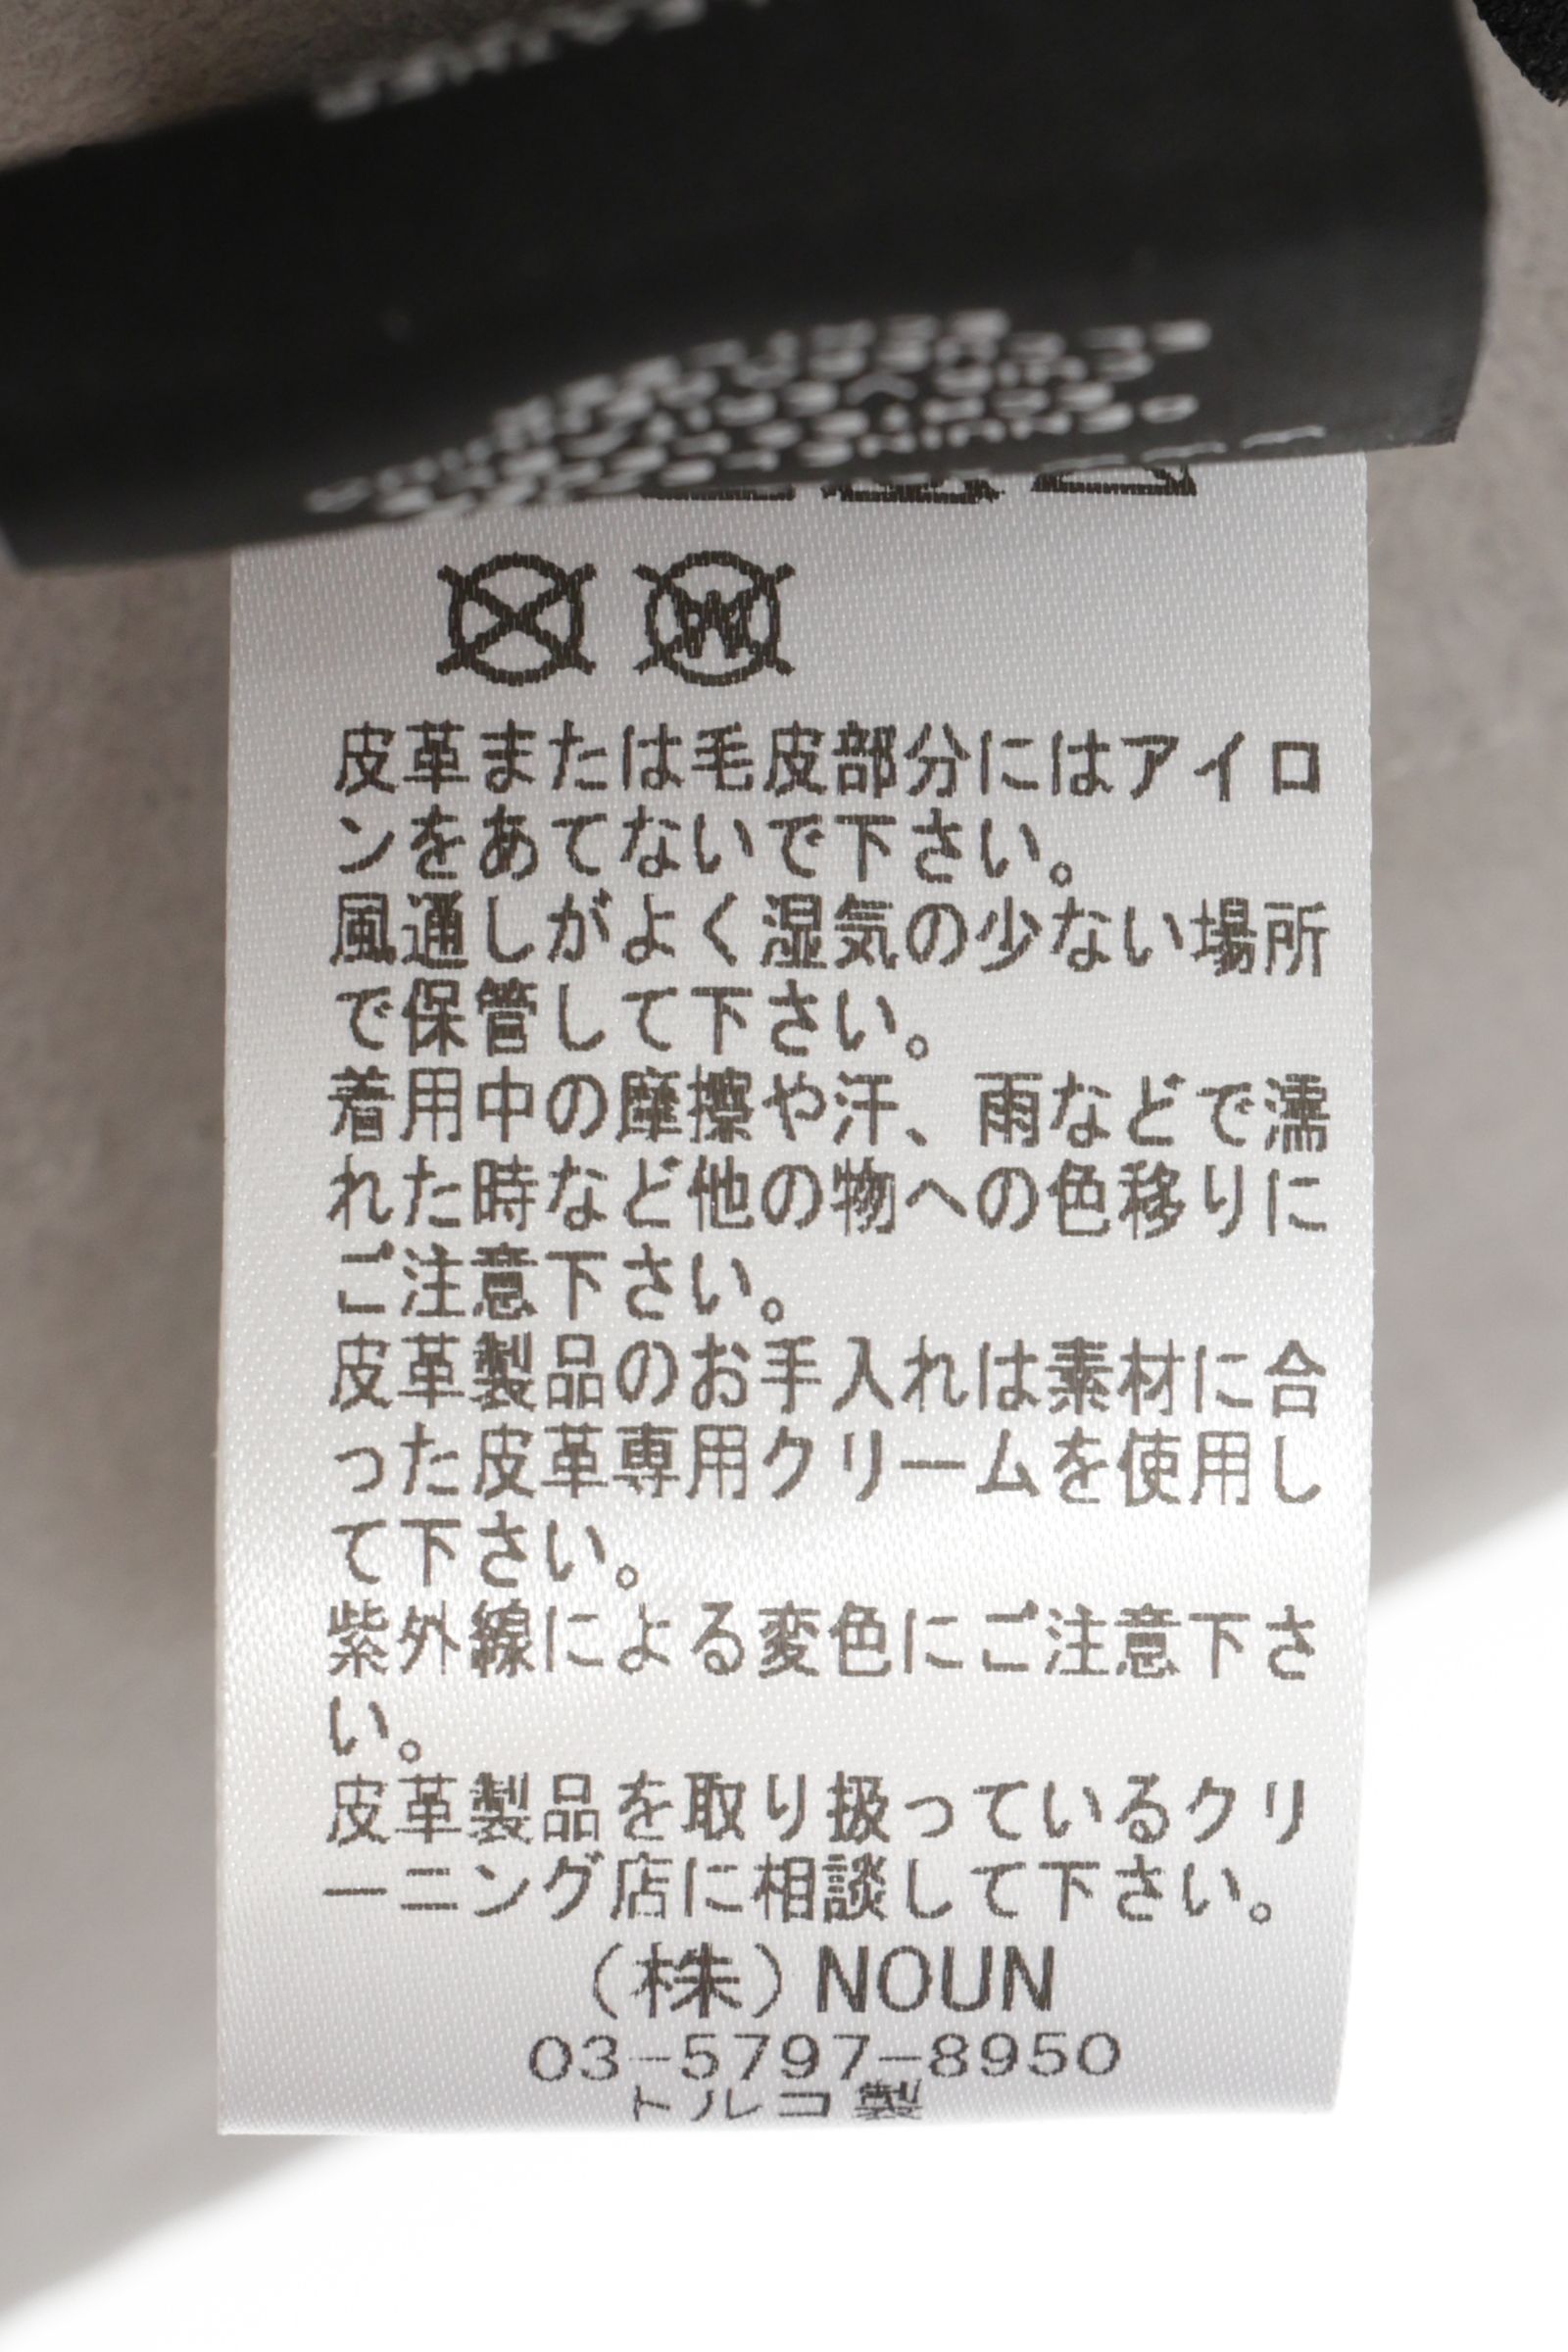 W
皮革または毛皮部分にはアイロ
ンをあてないで下さい。
風通しがよく湿気の少ない場所
で保管して下さい。
着用中の摩擦や汗、雨などで濡
れた時など他の物への色移りに
ご注意下さい。
皮革製品のお手入れは素材に合
った皮革専用クリームを使用し
て下さい。
紫外線による変色にご注意下さ
い。
皮革製品を取り扱っているクリ
ーニング店に相談して下さい。
（株）NOUN
03-5797-8950
トルコ製